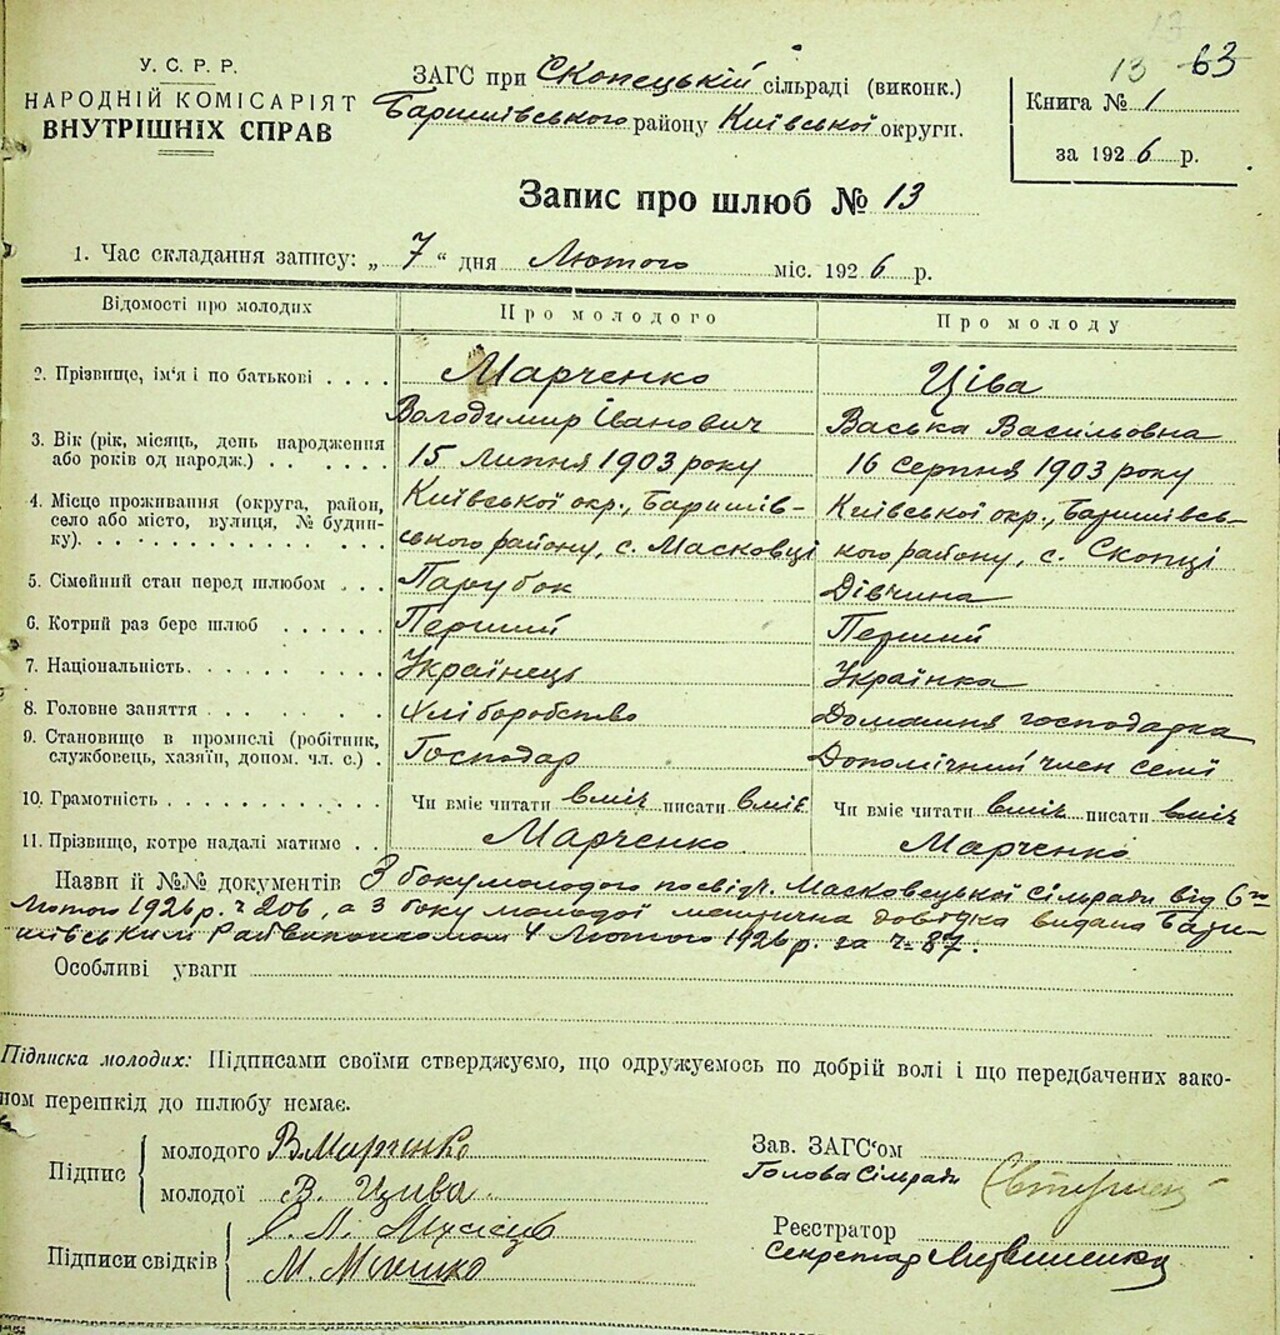 13 63
У. С. Р. Р.
НАРОДНІЙ КОМІСАРІЯТ
ВНУТРІШНІХ СПРАВ
ЗАГС при Скопецькій сільраді (виконк.)
Баришівського району Київської округи.
Книга № 1
за 1926 р.
Запис про шлюб № 13
1. Час складання запису: „ 7 “ дня Лютого міс. 1926 р.
Відомості про молодих
Про молодого
Про молоду
2. Прізвище, ім'я і по батькові . . . .
Марченко
Володимир Іванович
Ціва
Васька Васильовна
3. Вік (рік, місяць, день народження
або років од народж.) . . . . . . .
15 Липня 1903 року
16 Серпня 1903 року
4. Місце проживання (округа, район,
село або місто, вулиця, № будин-
ку). . . . . . . . . . . . . . . . .
Київської окр., Баришів-
ського району, с. Масковці
Київської окр., Баришівсь-
кого району, с. Скопці
5. Сімейний стан перед шлюбом . . .
Парубок
Дівчина
6. Котрий раз бере шлюб . . . . . .
Перший
Перший
7. Національність. . . . . . . . . .
Українець
Українка
8. Головне заняття . . . . . . .
Хліборобство
Домашня господарка
9. Становище в промислі (робітник,
службовець, хазяїн, допом. чл. с.) .
Господар
Допомічний член семї
10. Грамотність . . . . . . . . . . .
Чи вміє читати вміє писати вміє
Чи вміє читати вміє писати вміє
11. Прізвище, котре надалі матиме . .
Марченко
Марченко
Назви й №№ документів З боку молодого посвідч. Масковецької Сільради від 6го
Лютого 1926 р. ч 206, а з боку молодої метрична довідка видана Бари-
шівським Райвиконкомом 4 Лютого 1926 р. за ч. 87.
Особливі уваги
Підписка молодих: Підписами своїми стверджуємо, що одружуємось по добрій волі і що передбачених зако-
ном перешкід до шлюбу немає.
Підпис
молодого ВМарченко
молодої В. Цива
Підписи свідків
М.
Зав. ЗАГС'ом
Голова Сільради
Реєстратор
Секретар Литвиненко